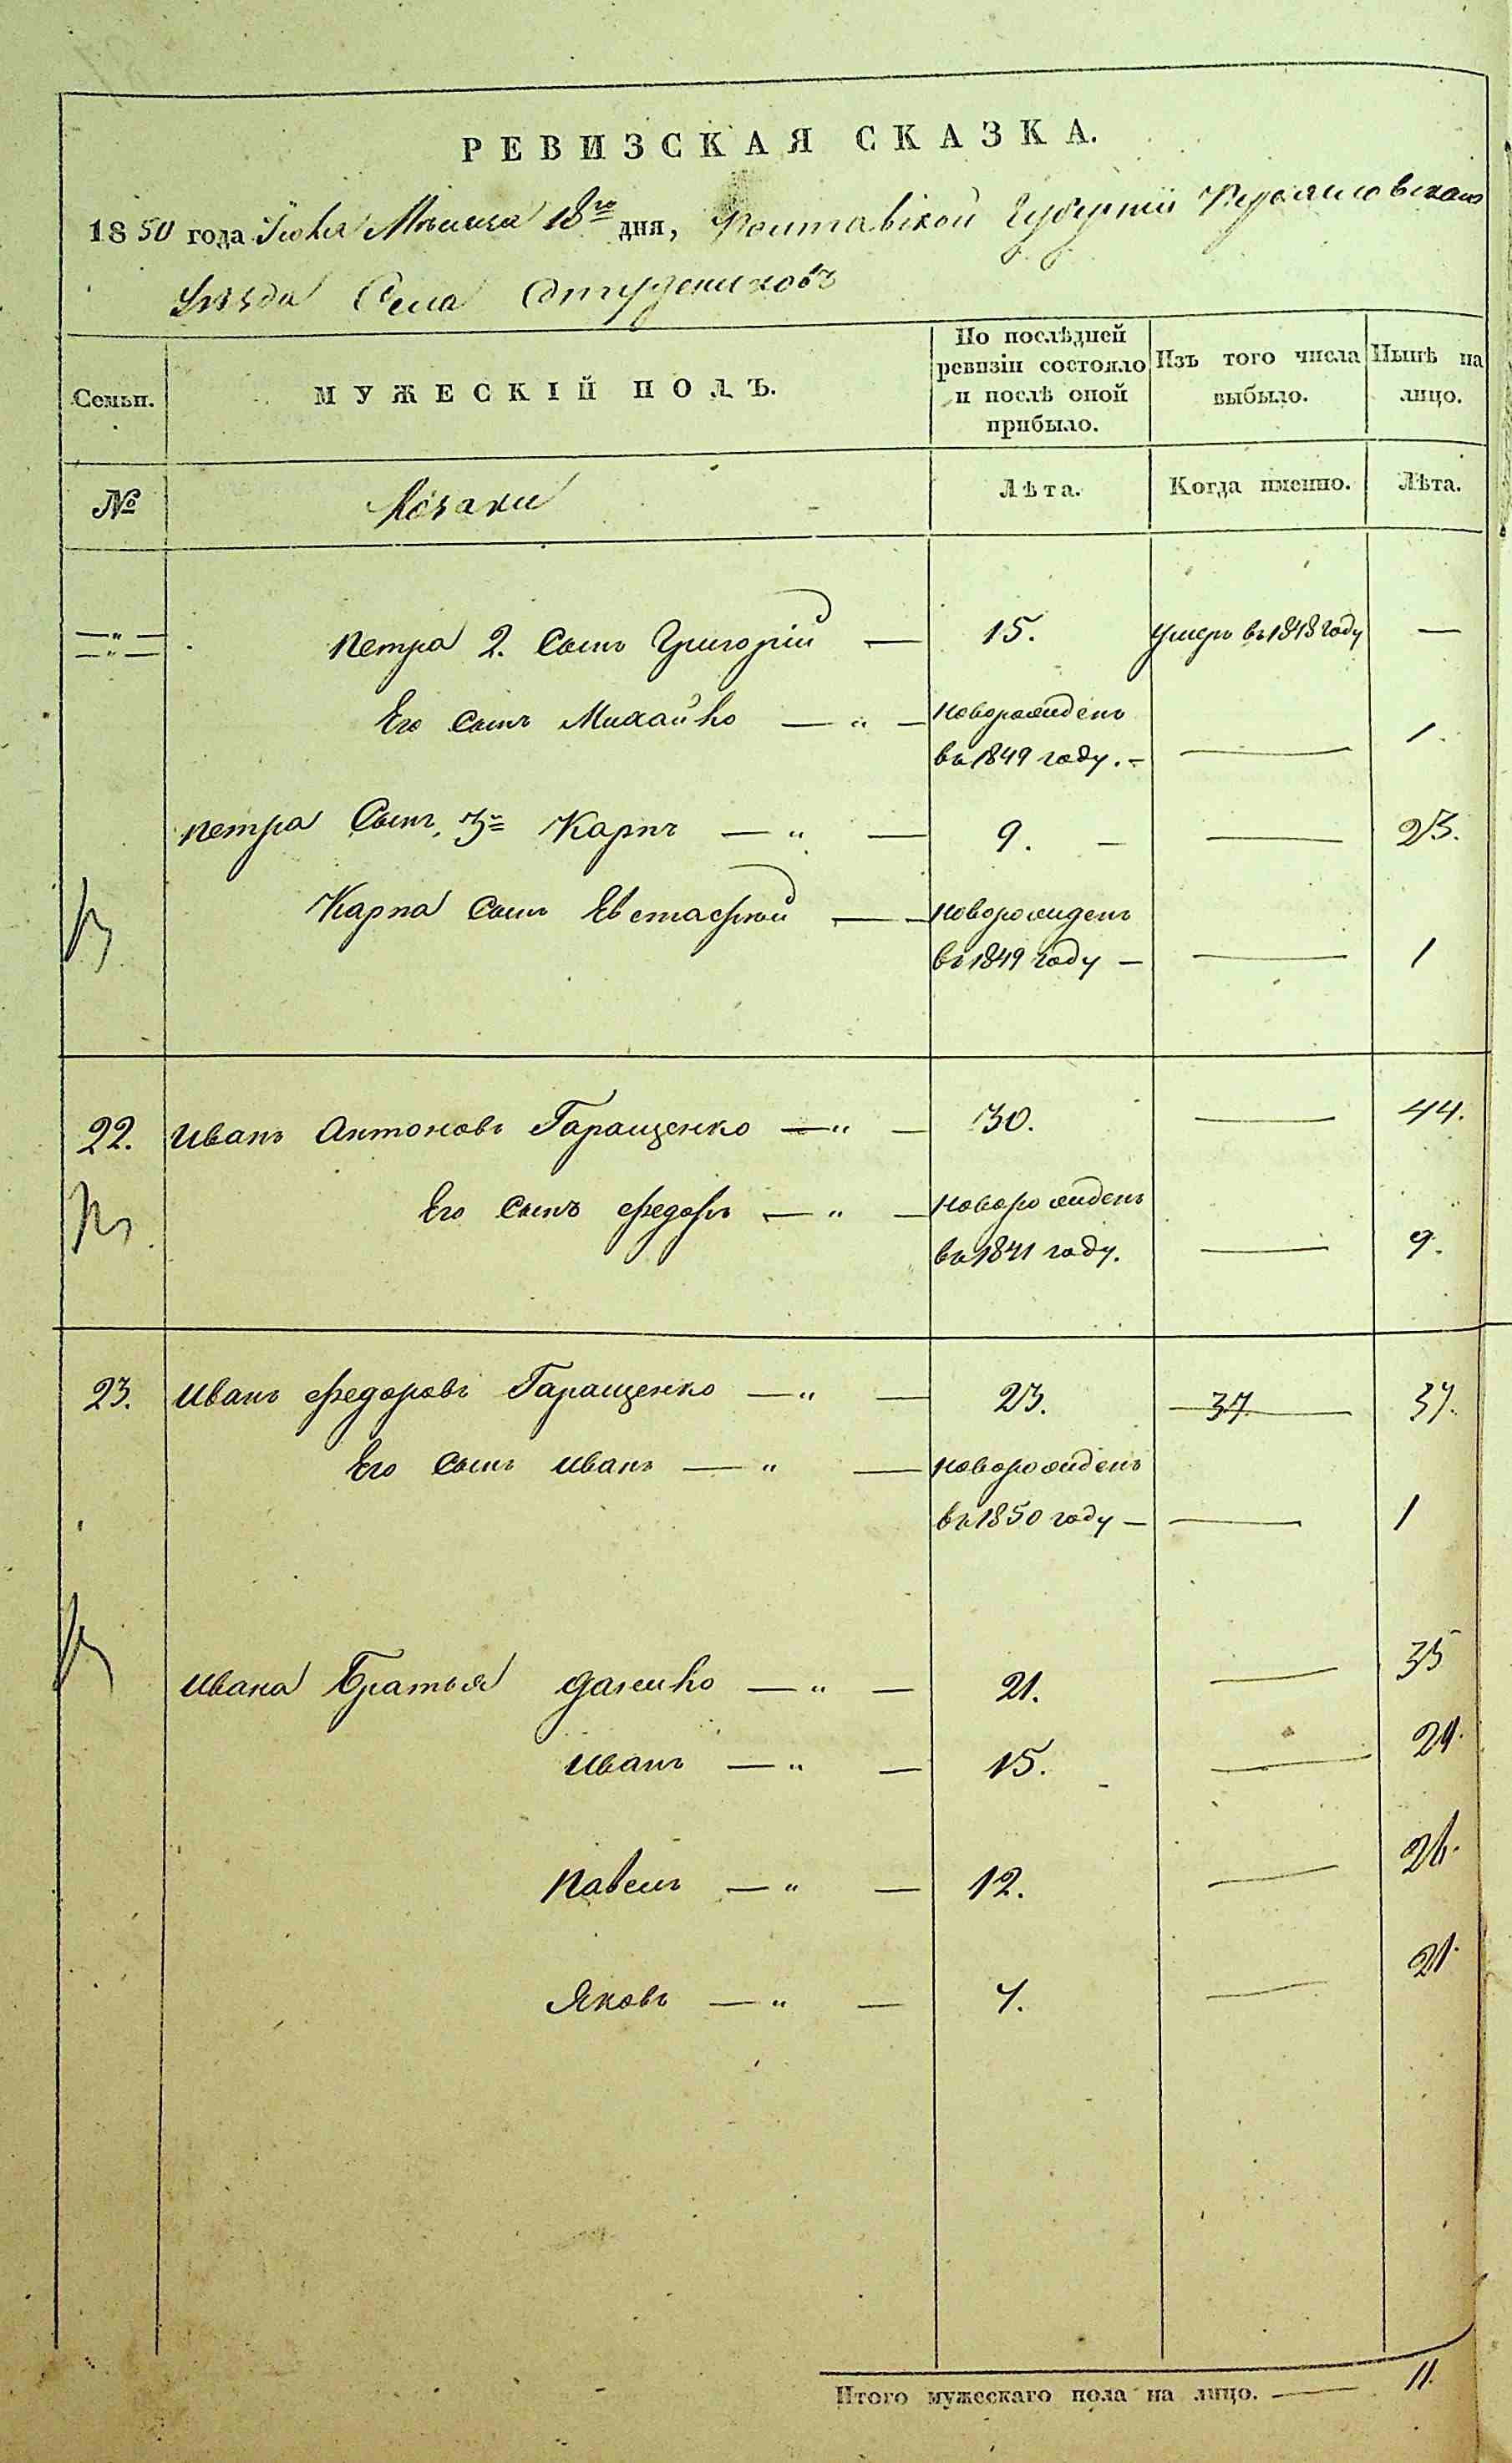 РЕВИЗСКАЯ СКАЗКА.
1850 года Іюня Мѣсяца 18го дня, Полтавской Губерніи Переяславскаго
Уѣзда Села Студениковъ
Семьи. МУЖЕСКІЙ ПОЛЪ. По послѣдней ревизіи состояло и послѣ оной прибыло. Изъ того числа выбыло. Нынѣ на лицо.
№ Козаки Лѣта. Когда именно. Лѣта.
—"— Петра 2. Сынъ Григорій — 15. Умеръ въ 1848 году —
—"—
Его Сынъ Михайло — " — новорожденъ
въ 1849 году. — — 1.
Петра Сынъ, 3й Карпъ — " — 9. — — 23.
Карпа Сынъ Евстафій — — новорожденъ
въ 1849 году — — 1
22. Иванъ Антоновъ Гаращенко — " — 30. — 44.
Его Сынъ Федоръ — " — новорожденъ
въ 1841 году. — 9.
23. Иванъ Федоровъ Гаращенко — " — 23. 37 37.
Его Сынъ Иванъ — " — новорожденъ
въ 1850 году — — 1
Ивана Братья Данило — " — 21. — 35
Иванъ — " — 15. — 29.
Павелъ — " — 12. — 26.
Яковъ — " — 7. — 21.
Итого мужескаго пола на лицо. — 11.